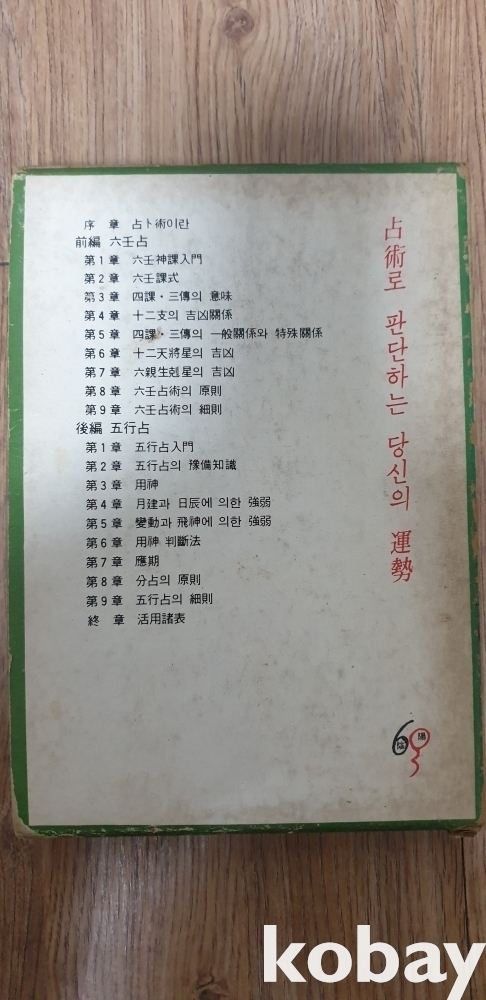 序 章 占卜術이란
前編 六壬占
第1章 六壬神課入門
第2章 六壬課式
第3章 四課・三傳의 意味
第4章 十二支의 吉凶關係
第5章 四課・三傳의 一般關係와 特殊關係
第6章 十二天將星의 吉凶
第7章 六親生剋星의 吉凶
第8章 六壬占術의 原則
第9章 六壬占術의 細則
後編 五行占
第1章 五行占入門
第2章 五行占의 豫備知識
第3章 用神
第4章 月建과 日辰에 의한 強弱
第5章 變動과 飛神에 의한 強弱
第6章 用神 判斷法
第7章 應期
第8章 分占의 原則
第9章 五行占의 細則
終 章 活用諸表
占術로 판단하는 당신의 運勢
陰 陽
kobay